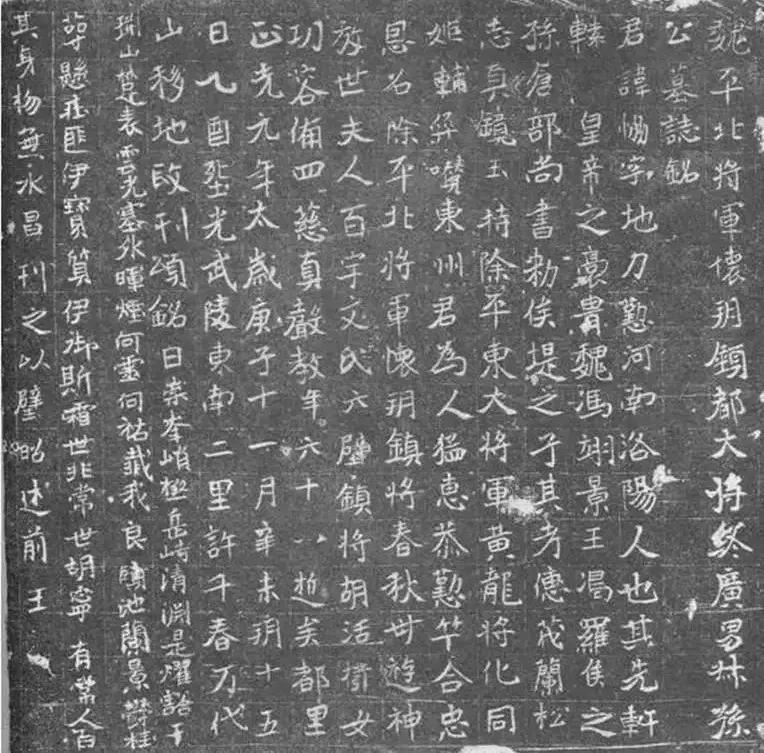 魏平北將軍懷玥鎮都大將終廣男叔孫
公墓誌銘
君諱協字地力懃河南洛陽人也其先軒
轅皇帝之裔胄魏馮翊景王渴羅侯之
孫倉部尚書勑俟堤之子其考德茂蘭松
志真鏡玉持除平東大將軍黃龍將化同
姬輔舜囋東州君為人猛惠恭懃竿合忠
恩召除平北將軍懷玥鎮將春秋廿遊神
放世夫人百宇文氏六壁鎮將胡活撥女
功容備四慈真嚴教年六十八逝矣都里
正光元年太歲庚子十一月辛未玥十五
日乙酉塟光武陵東南二里許千春万代
山移地改刊頌銘曰崇峯峭極岳崎清淵是燿詒于
山楚表雲光塞外暉煙何靈何祜載我良隨池蘭景欝桂
萼懸莊匪伊寶質伊御斯霜世非常世胡寧有常人百
其身物無永昌刊之以壁昭述前王